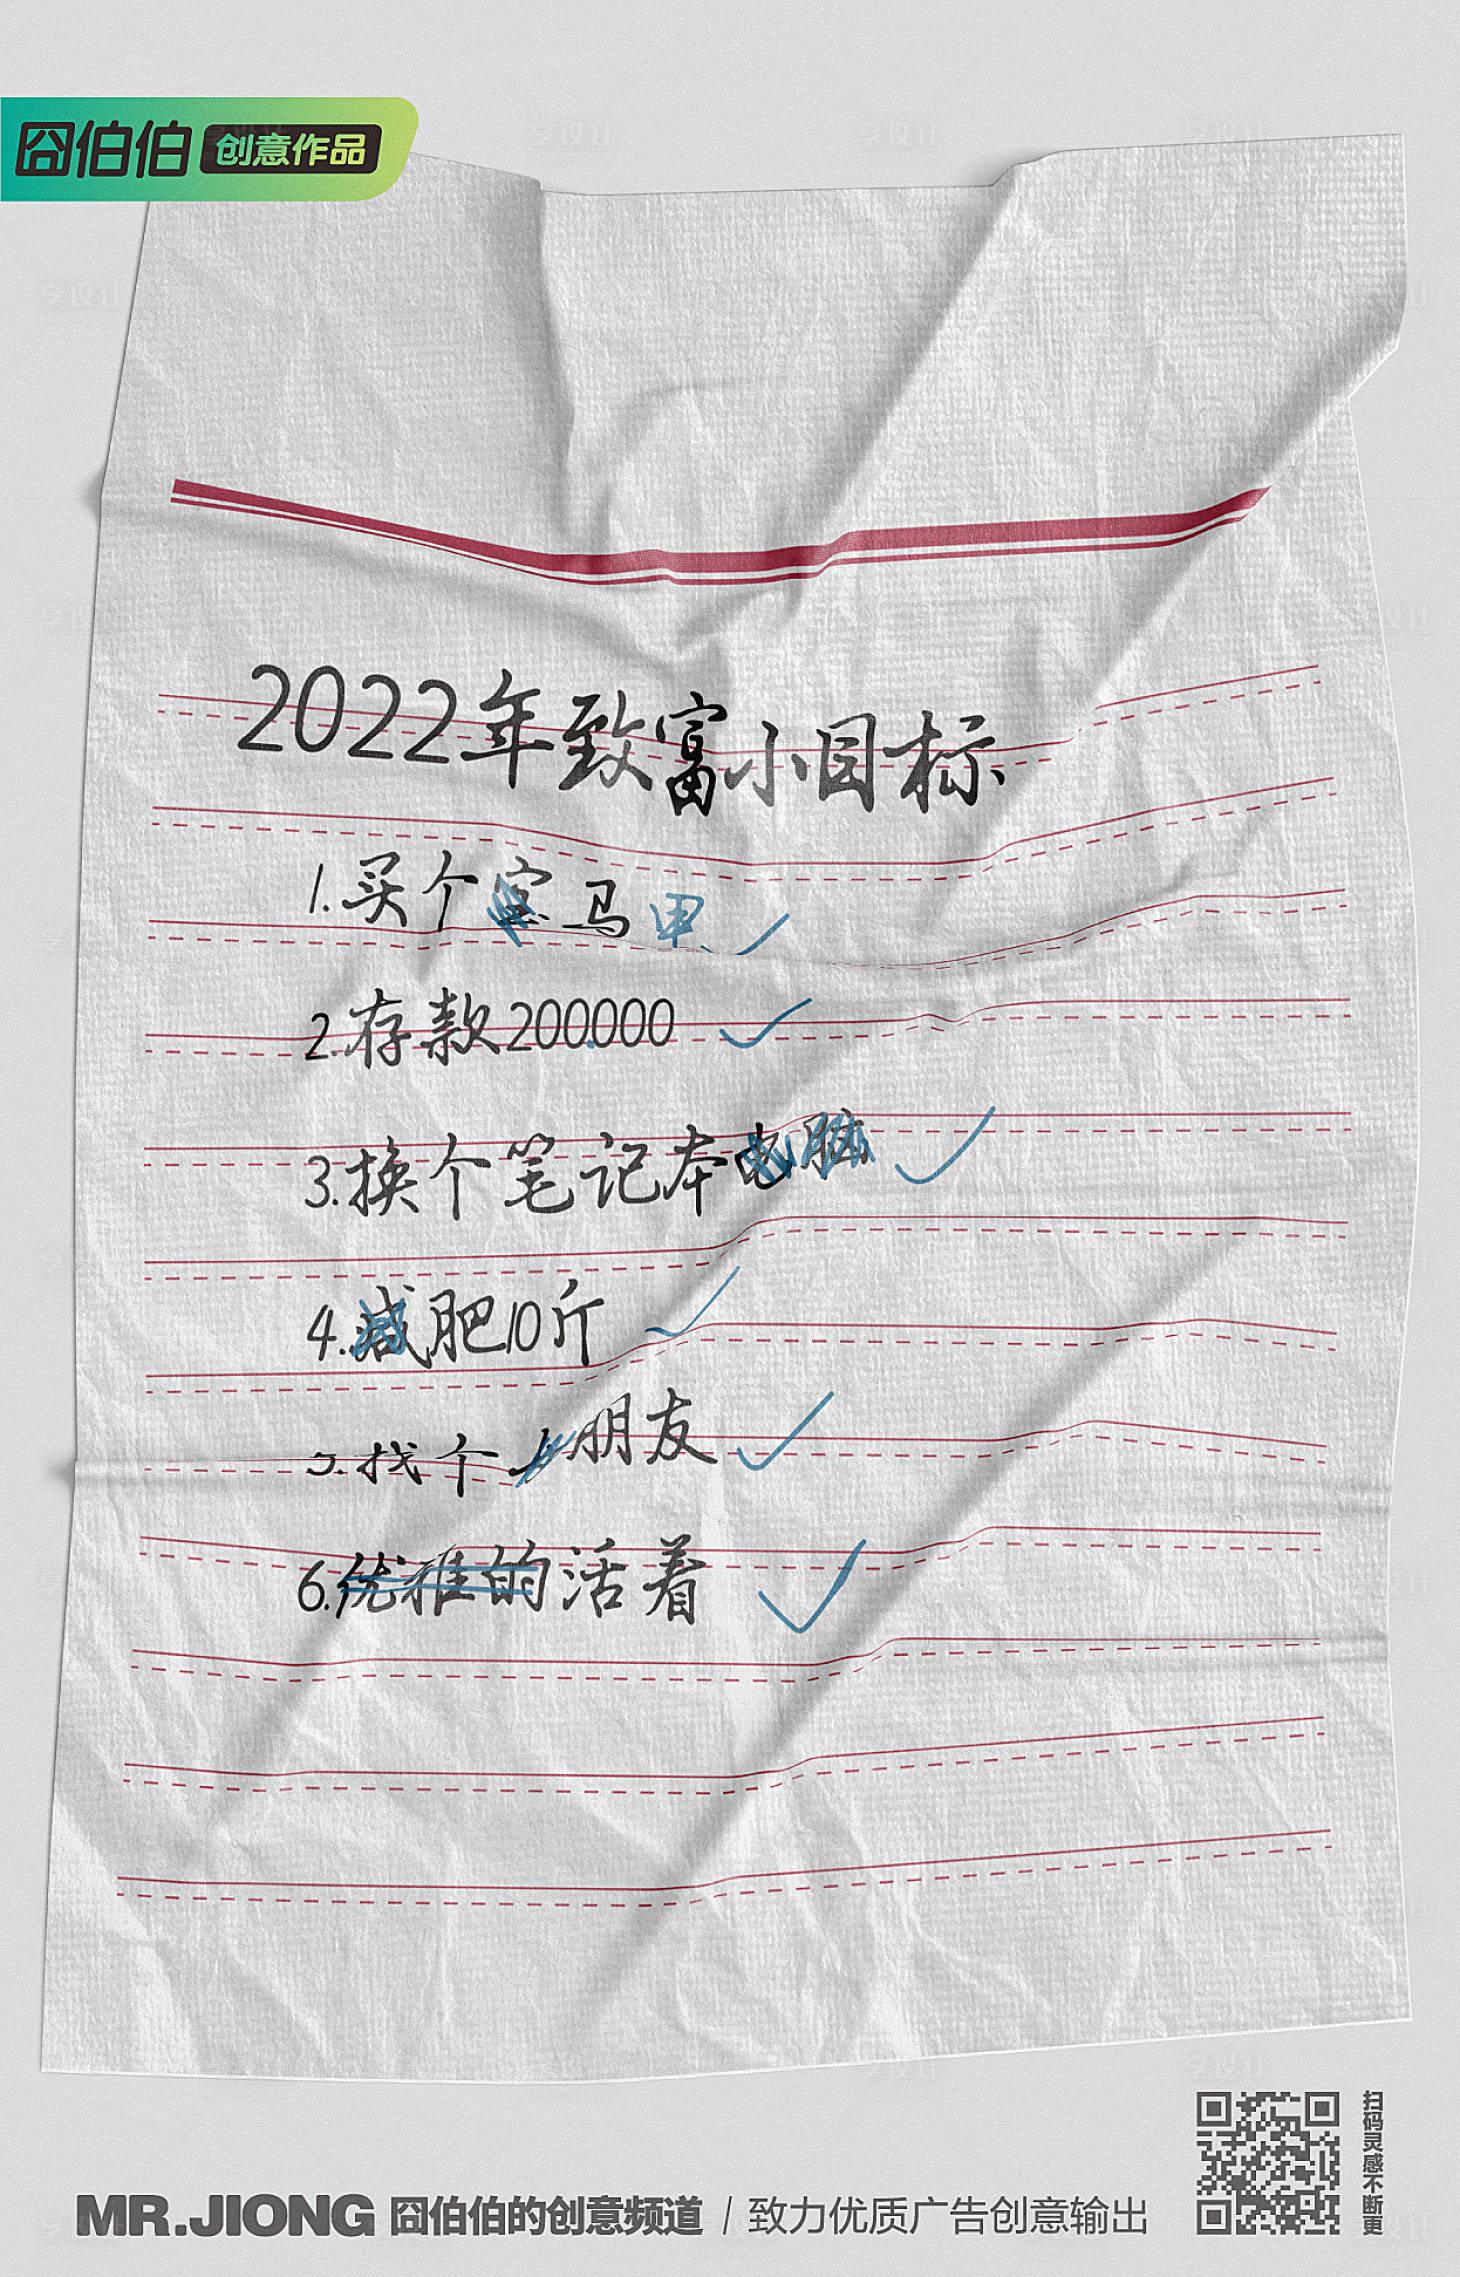 囧伯伯 创意作品
2022年致富小目标
1.买个宝马甲
2.存款200.000
3.换个笔记本电脑
4.减肥10斤
5.找个女朋友
6.优雅的活着
扫码灵感不断更
MR.JIONG 囧伯伯的创意频道 / 致力优质广告创意输出